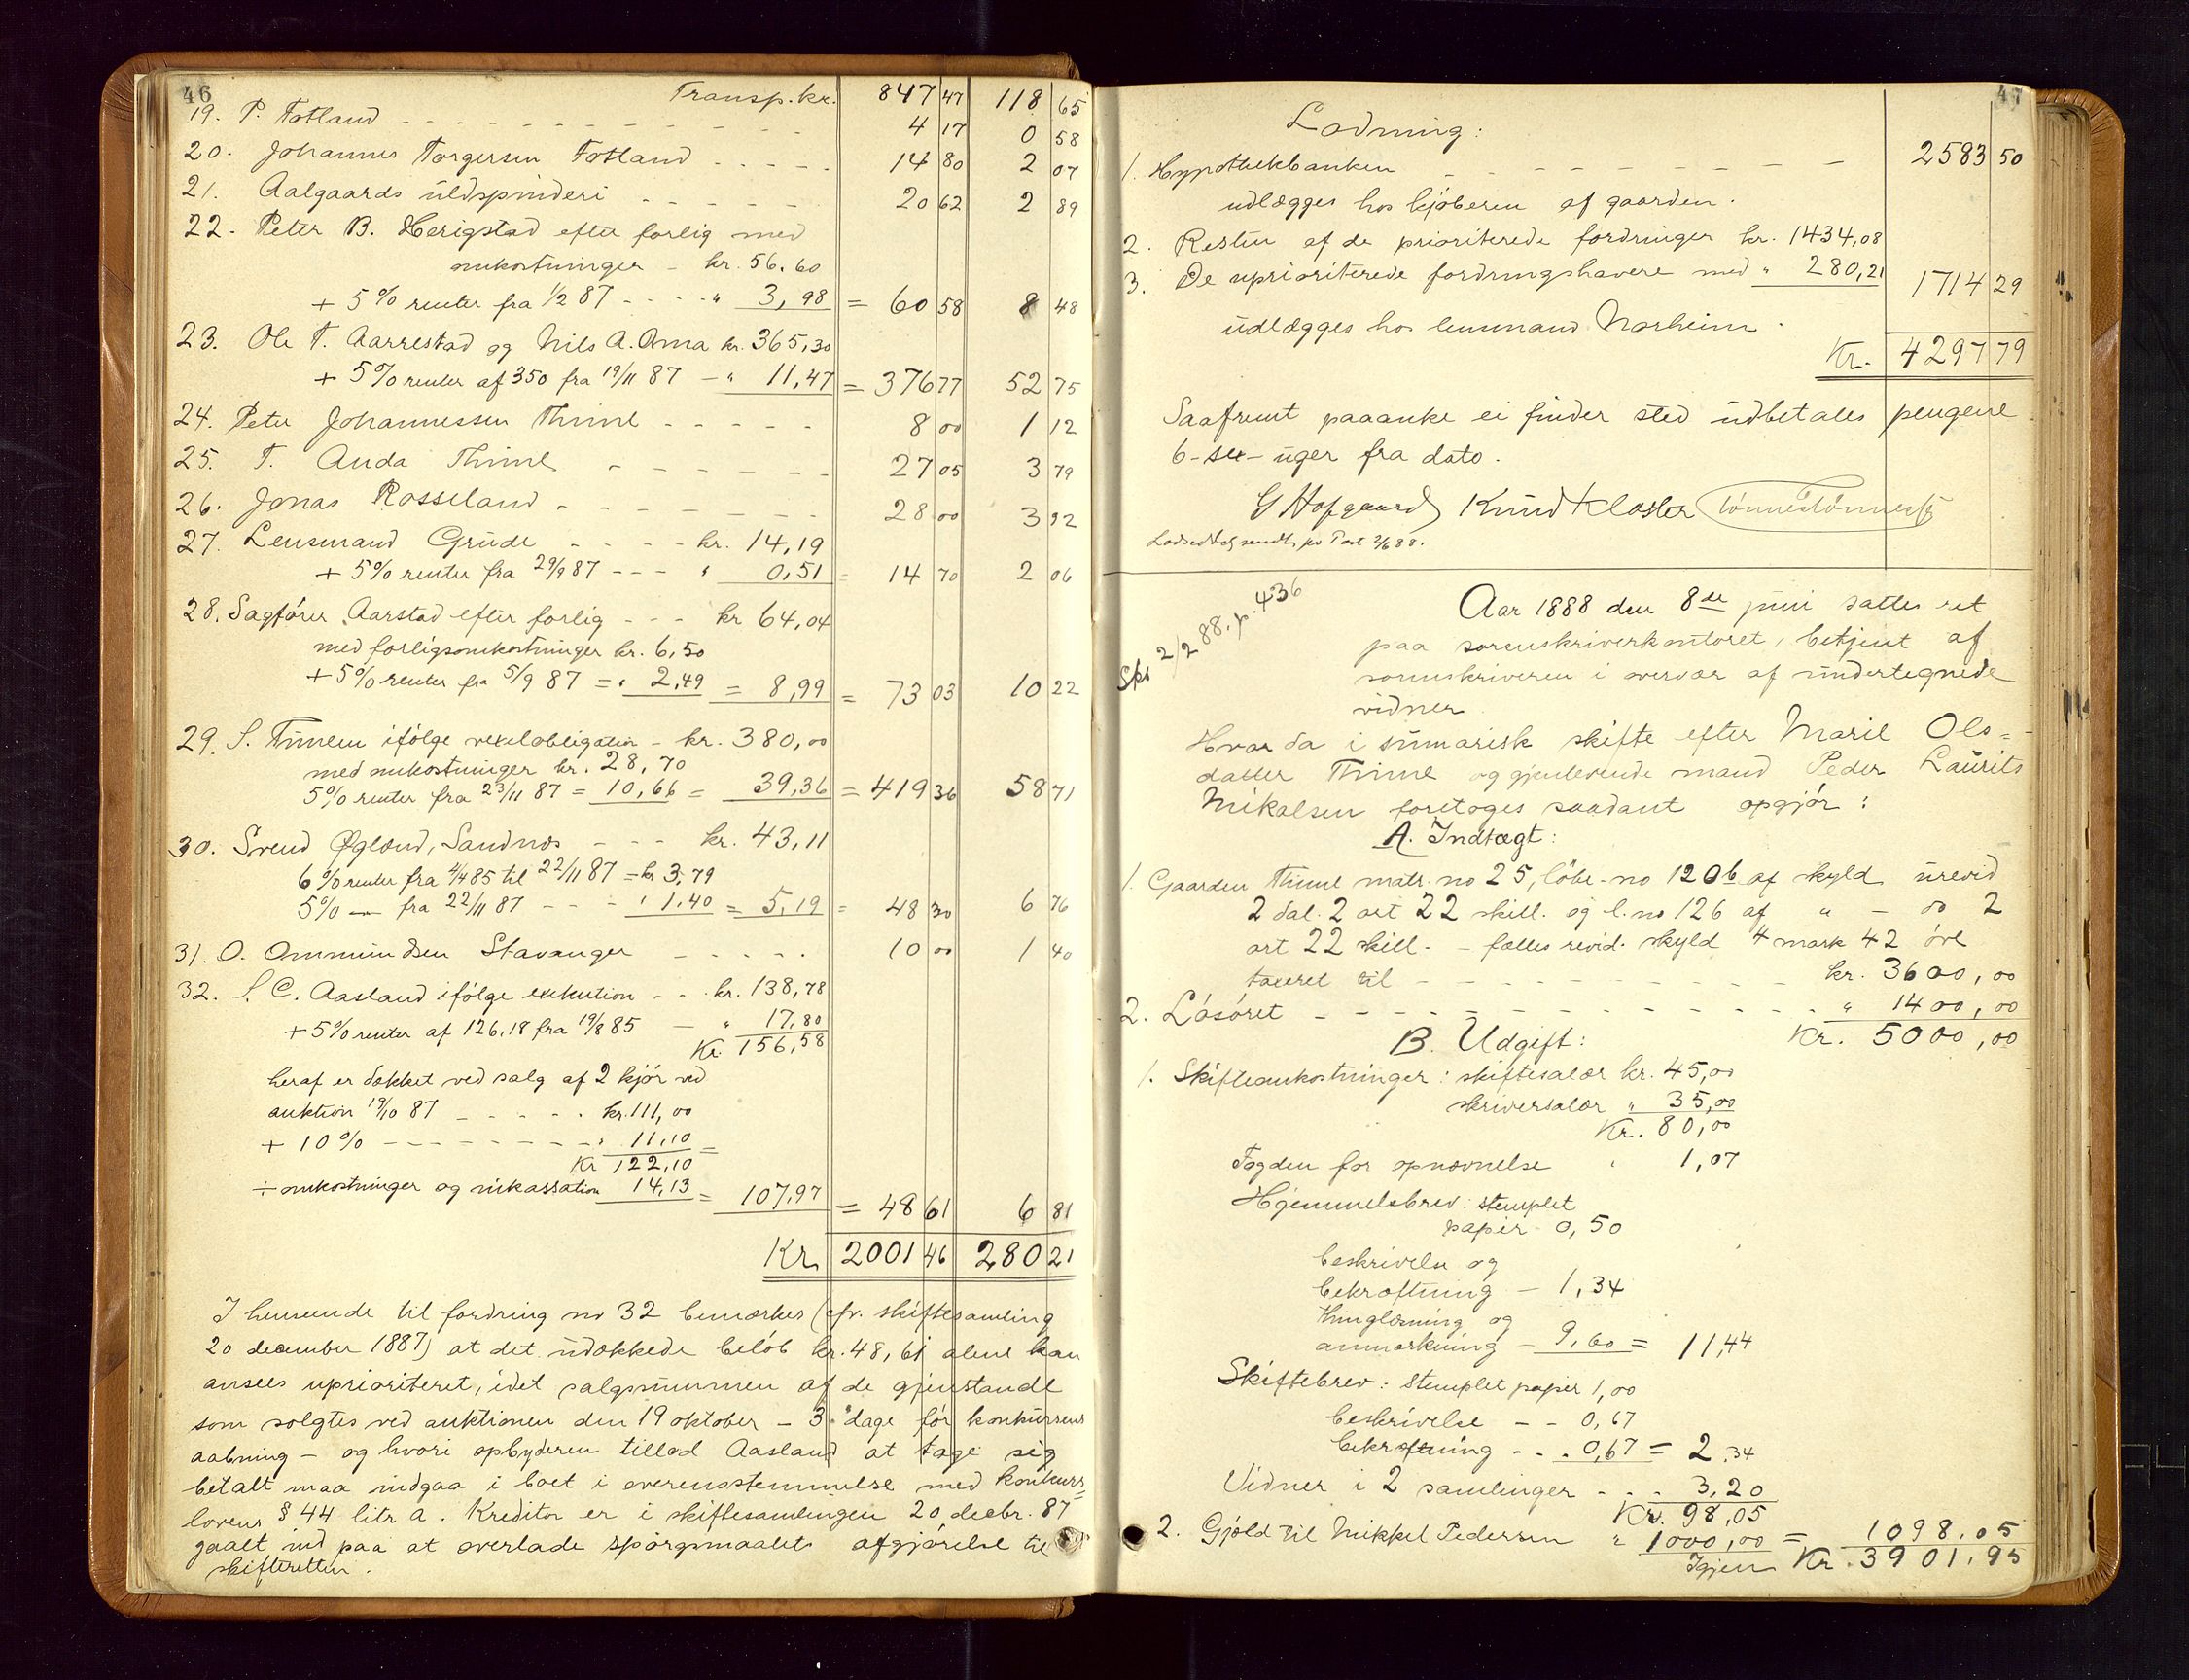 46
Transp. kr. 847 47 118 65
19. P. Fotland - - - 4 17 0 58
20. Johannes Torgersen Fotland - - - 14 80 2 07
21. Aalgaards uldspinderi - - - 20 62 2 89
22. Peter B. Herigstad efter forlig med
omkostninger - kr. 56.60
+ 5% renter fra 1/2 87 - - - " 3,98 = 60 58 8 48
23. Ole T. Aarrestad og Nils A. Oma kr. 365,30
+ 5% renter af 350 fra 19/11 87 - " 11,47 = 376 77 52 75
24. Peter Johannessen Thime - - - 8 00 1 12
25. T. Anda Thime - - - 27 05 3 79
26. Jonas Rosseland - - - 28 00 3 92
27. Lensmand Grude - - - kr. 14,19
+ 5% renter fra 29/9 87 - - - " 0,51 = 14 70 2 06
28. Sagfører Aarstad efter forlig - - - kr 64,04
med forligsomkostninger kr. 6,50
+ 5% renter fra 5/9 87 = " 2,49 = 8,99 = 73 03 10 22
29. S. Thimen ifølge vexelobligation - kr. 380,00
med omkostninger kr. 28,70
5% renter fra 23/11 87 = 10,66 = 39,36 = 419 36 58 71
30. Svend Øglænd, Sandnæs - - - kr. 43,11
6% renter fra 4/4 85 til 22/11 87 = kr 3,79
5% — fra 22/11 87 - - - " 1,40 = 5,19 = 48 30 6 76
31. O. Ommundsen Stavanger - - - 10 00 1 40
32. S. C. Aasland ifølge exekution - - kr. 138,78
+ 5% renter af 126,18 fra 19/8 85 - " 17,80
Kr. 156,58
heraf er dækket ved salg af 2 kjør ved
auktion 19/10 87 - - - kr. 111,00
+ 10% - - - " 11,10
Kr 122,10
÷ omkostninger og inkassation 14,13 = 107,97 = 48 61 6 81
Kr. 2001 46 280 21
I henseende til fordring no 32 bemærkes (cfr. skiftesamling
20 december 1887) at det udækkede beløb kr. 48,61 alene kan
ansees uprioriteret, idet salgsummen af de gjenstande
som solgtes ved auktionen den 19 oktober - 3 dage før konkursens
aabning - og hvori opbyderen tillod Aasland at tage sig
betalt maa indgaa i boet i overensstemmelse med konkurs=
lovens § 44 litr a. Kreditor er i skiftesamlingen 20 decbr. 87
gaaet ind paa at overlade spørgsmaalets afgjørelse til
skifteretten.
47
Lodning:
1. Hypothekbanken - - - 2583 50
udlægges hos kjøberen af gaarden.
2. Resten af de prioriterede fordringer kr. 1434,08
3. De uprioriterede fordringshavere med " 280,21 1714 29
udlægges hos lensmand Norheim.
Kr. 4297 79
Saafremt paaanke ei finder sted udbetales pengene
6 - sex - uger fra dato.
G Hofgaard Knud Kloster Tønnes Tønnessen
Lodsedler sendt pr Post 2/6 88.
Aar 1888 den 8de juni sattes ret
paa sorenskriverkontoret, betjent af
sorenskriveren i overvær af undertegnede
vidner
2/2 88. p. 436
Hvor da i sumarisk skifte efter Marie Ols=
datter Thime og gjenlevende mand Peder Laurits
Mikalsen foretoges saadant opgjør:
A. Indtægt:
1. Gaarden Thime matr. no 25, løbe-no 120b af skyld urevid
2 dal. 2 ort 22 skill. og l. no 126 af " - do 2
ort 22 skill. - fælles revid. skyld 4 mark 42 øre
taxeret til - - - kr. 3600,00
2. Løsøret - - - " 1400,00
Kr. 5000,00
B. Udgift:
1. Skifteomkostninger: skiftesalær kr. 45,00
skriversalær " 35,00
Kr. 80,00
Fogden for opnævnelse " 1,07
Hjemmelsbrev: stemplet
papir 0,50
beskrivelse og
bekræftning - 1,34
thinglæsning og
anmærkning - 9,60 = 11,44
Skiftebrev: stemplet papir 1,00
beskrivelse - - 0,67
bekræftning - - . 0,67 = 2.34
Vidner i 2 samlinger - - - 3,20
Kr. 98,05
2. Gjæld til Mikkel Pedersen " 1000,00 = 1098.05
Igjen Kr. 3901,95